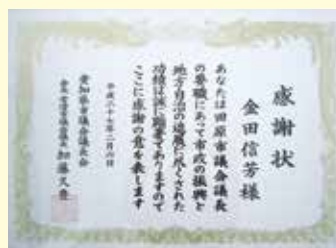 感謝状
金田信芳様
あなたは田原市議会議長
の要職にあって市政の振興と
地方自治の進展に尽くされた
功績は誠に顕著でありますので
ここに感謝の意を表します
平成二十七年二月六日
愛知県市議会議長会
会長
加藤久豊